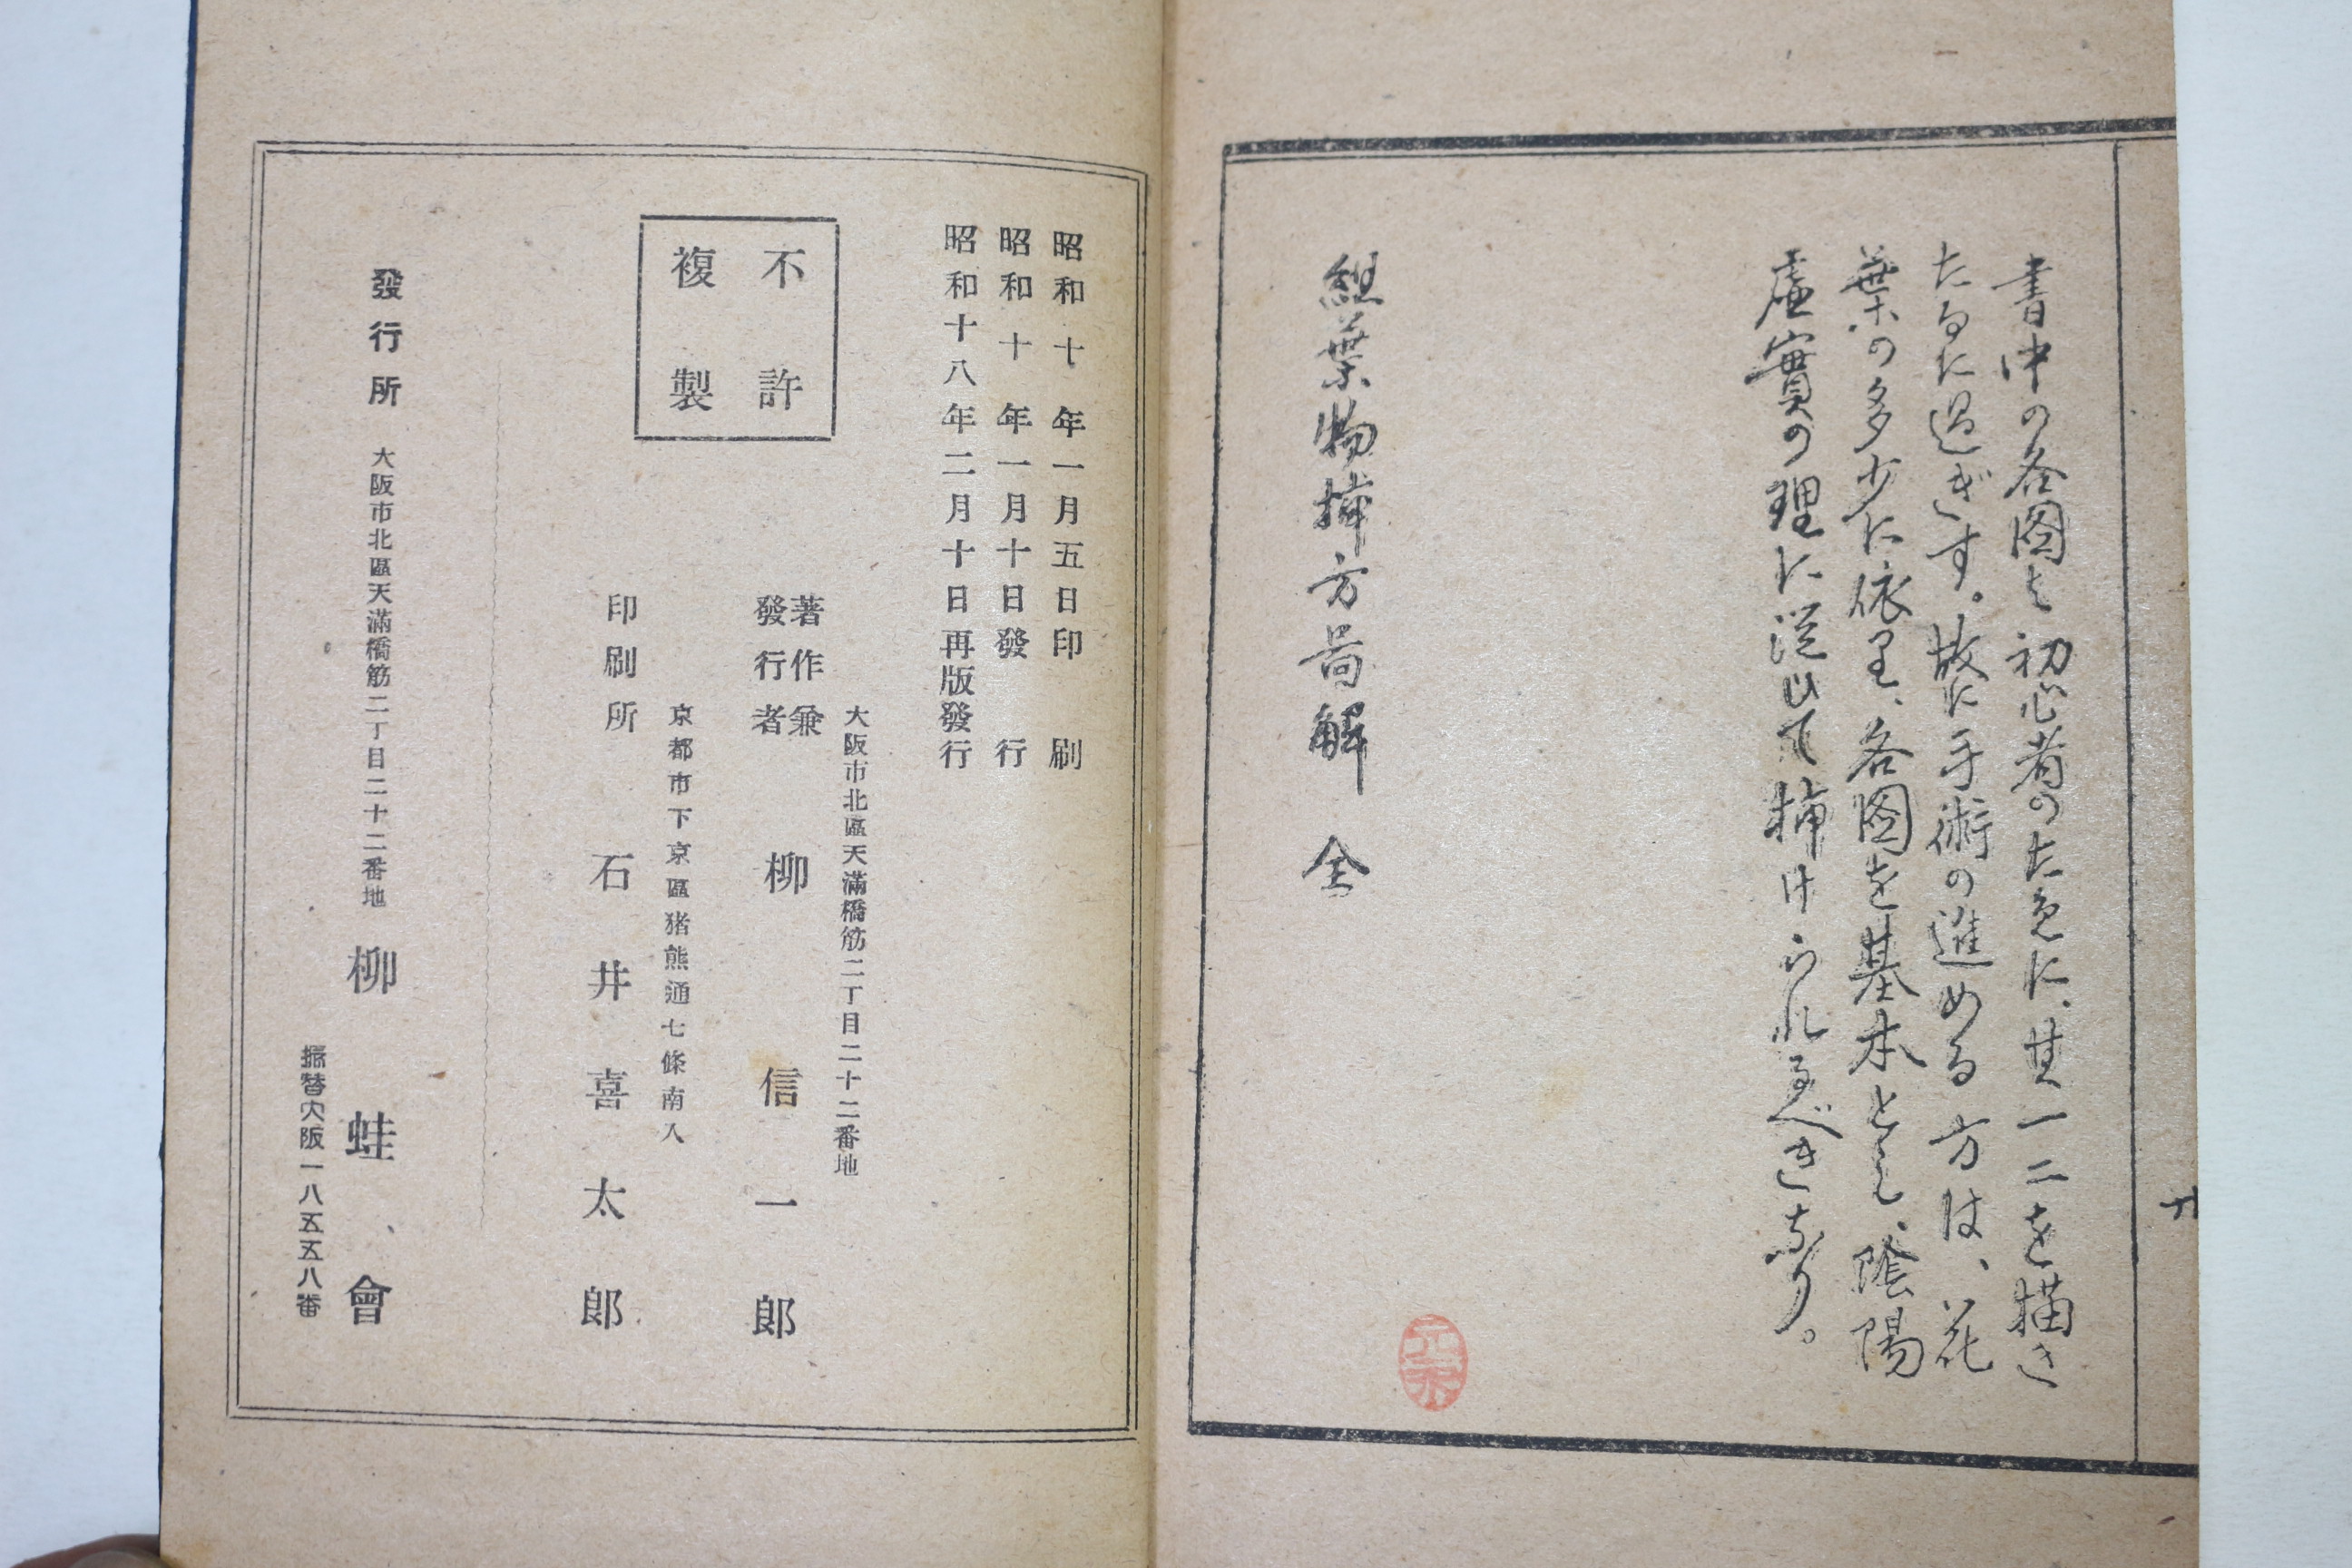 書中の各図も初心者のた免に、其一二を描き
たるに過ぎす。故に手術の進める方は、花
葉の多少に依里、各図を基本とし、陰陽
虚實の理に従ひて挿けられるべきなり。
組葉物挿方図解 全
昭和十年一月五日印刷
昭和十年一月十日發行
昭和十八年二月十日再版發行
不許
複製
大阪市北區天滿橋筋二丁目二十二番地
著作兼
發行者 柳信一郎
京都市下京區猪熊通七條南入
印刷所 石井喜太郎
發行所 大阪市北區天滿橋筋二丁目二十二番地 柳蛙會
振替大阪一八五五八番